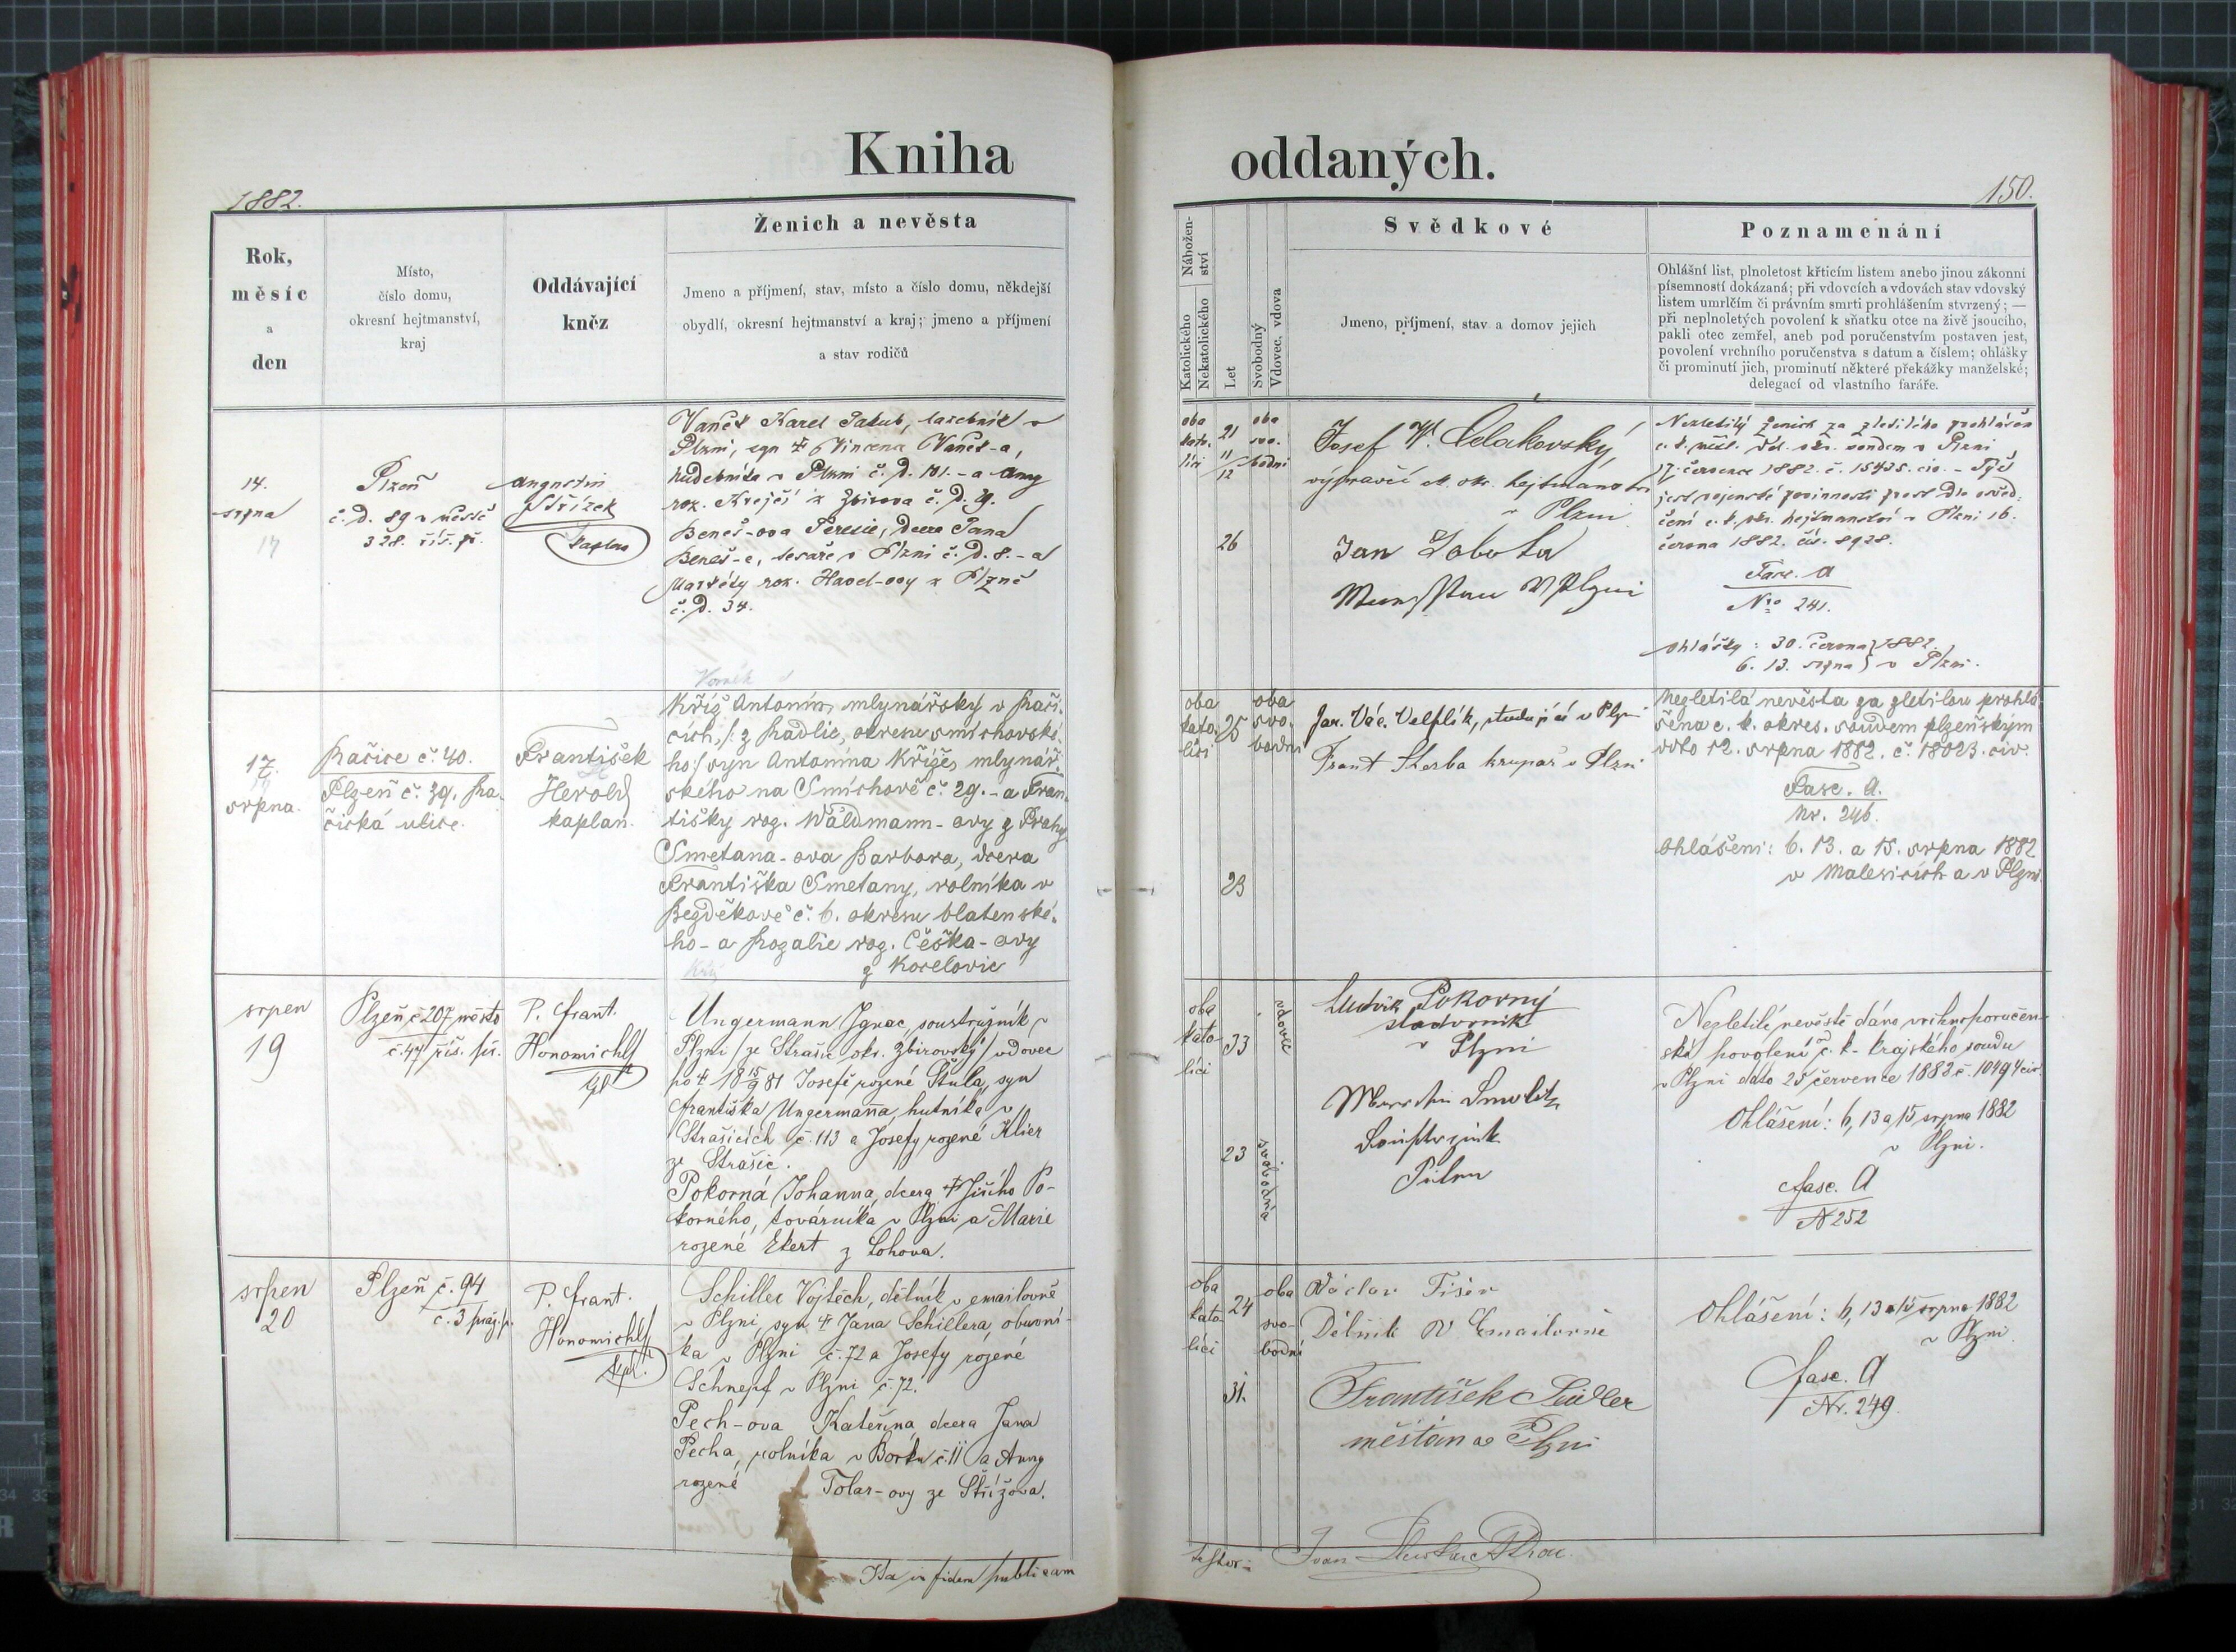 Kniha
oddaných.
1882.
150.
Rok,
měsíc
a
den
Místo,
číslo domu,
okresní hejtmanství,
kraj
Oddávající
kněz
Ženich a nevěsta
Jmeno a příjmení, stav, místo a číslo domu, někdejší
obydlí, okresní hejtmanství a kraj; jmeno a příjmení
a stav rodičů
Nábožen-
ství
Katolického
Nekatolického
Let
Svobodný
Vdovec, vdova
Svědkové
Jmeno, příjmení, stav a domov jejich
Poznamenání
Ohlášní list, plnoletost křticím listem anebo jinou zákonní
písemností dokázaná; při vdovcích a vdovách stav vdovský
listem umrlčím či právním smrti prohlášením stvrzený; —
při neplnoletých povolení k sňatku otce na živě jsoucího,
pakli otec zemřel, aneb pod poručenstvím postaven jest,
povolení vrchního poručenstva s datum a číslem; ohlášky
či prominutí jich, prominutí některé překážky manželské;
delegací od vlastního faráře.
14.
srpna
Plzeň
č. D. 89 v městě
328. říš. př.
Augustin
Střízek
kaplan
Vaněk Karel Jakub, lazebník v
Plzni, syn † Vincenc Vaněk-a,
hudebníka v Plzni č. D. 101. - a Anny
roz. Krejčí z Zbirova č. D. 29.
Beneš-ova Terezie, dcera Jana
Beneš-e, tesaře v Plzni č. D. 8. - a
Markéty roz. Havel-ovy z Plzně
č. D. 34.
oba
kato-
líci
21
11/12
26
oba
svo-
bodni
Josef V. Čelakovský
výpravčí c. k. okr. hejtmanství
v Plzni
Jan Sobota
v Plzni
Nezletilý ženich za zletilého prohlášen
c. k. měst. del. okr. soudem v Plzni
17. července 1882. č. 15435. civ. - Týž
jest vojenské povinnosti prost dle osvěd-
čení c. k. okr. hejtmanství v Plzni 16.
června 1882. čís. 8928.
Fasc. A
Nro 241.
Ohlášky: 30. června 1882.
6. 13. srpna v Plzni.
17.
srpna.
Račice č. 40.
Plzeň č. 39. Ra-
čická ulice.
František
Herold
kaplan.
Kříž Antonín, mlynářský v Rači-
cích, /: z Radlic, okresu smíchovské-
ho :/ syn Antonína Kříže, mlynář-
ského na Smíchově č. 29. - a Fran-
tišky roz. Waldmann-ovy z Prahy
Smetana-ova Barbora, dcera
Františka Smetany, rolníka v
Bezděkově č. 6. okresu blatenské-
ho - a Rozalie roz. Češka-ovy
z Kocelovic
oba
kato-
líci
25
23
oba
svo-
bodni
Jan Vác. Velflík, studující v Plzni
Frant Skerba krupař v Plzni
Nezletilá nevěsta za zletilou prohlá-
šena c. k. okres. soudem plzeňským
ddto 12. srpna 1882. č. 18023. civ.
Fasc. A.
Nr. 246.
Ohlášeni: 6. 13. a 15. srpna 1882
v Malesicích a v Plzni.
srpen
19
Plzeň č 207 město
č. 44 říš. př.
P. Frant.
Honomichl
kpl
Ungermann Ignac, soustružník v
Plzni / ze Strašic okr. Zbirovský / vdovec
po † 18 15/9 81 Josefě rozené Štula, syn
Františka Ungermanna, hutníka v
Strašicích č. 113 a Josefy rozené Klier
ze Strašic.
Pokorná Johanna, dcera † Jiřího Po-
korného, továrníka v Plzni a Marie
rozené Ekert z Lohova.
oba
kato-
líci
33
23
vdovec
svobodná
Ludvík Pokorný
sladovník
v Plzni
Pilsen
Nezletilé nevěstě dáno vrchnoporučen-
ské povolení c. k. krajského soudu
v Plzni dato 25 července 1882 č. 10494 civ.
Ohlášení: 6, 13 a 15 srpna 1882
v Plzni.
fasc. A
N 252
srpen
20
Plzeň č. 94
č. 3 praž. p.
P. Frant.
Honomichl
kpl.
Schiller Vojtěch, dělník v emailovně
v Plzni, syn † Jana Schillera, obuvní-
ka v Plzni č. 72 a Josefy rozené
Schnepf v Plzni č. 72.
Pech-ova Kateřina, dcera Jana
Pecha, rolníka v Borku č. 11 a Anny
rozené Tolar-ovy ze Střížova.
oba
kato-
líci
24
31.
oba
svo-
bodní
Václav Fišer
Dělník v Emailovně
František Seidler
měšťan v Plzni
Ohlášení: 6, 13 a 15 srpna 1882
v Plzni.
fasc. A
Nr. 249.
Ita in fidem publicam
testor: